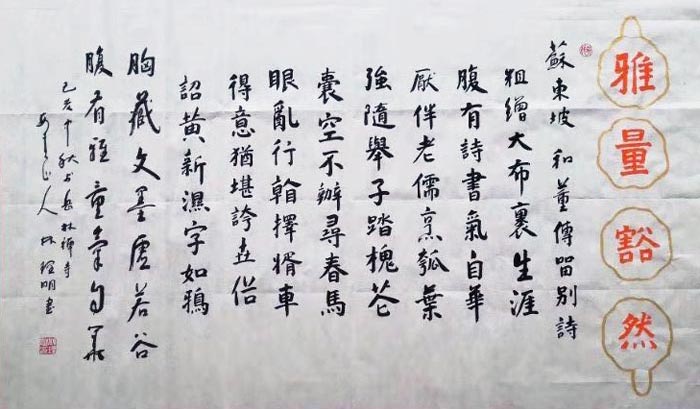 雅量豁然
蘇東坡 和董傳留別詩
粗繒大布裹生涯
腹有詩書氣自華
厭伴老儒烹瓠葉
強隨舉子踏槐花
囊空不辦尋春馬
眼亂行翰擇婿車
得意猶堪誇世俗
詔黃新濕字如鴉
胸藏文墨虛若谷
腹有雅量氣自華
己亥中秋於岳林禪寺
山人 林明書